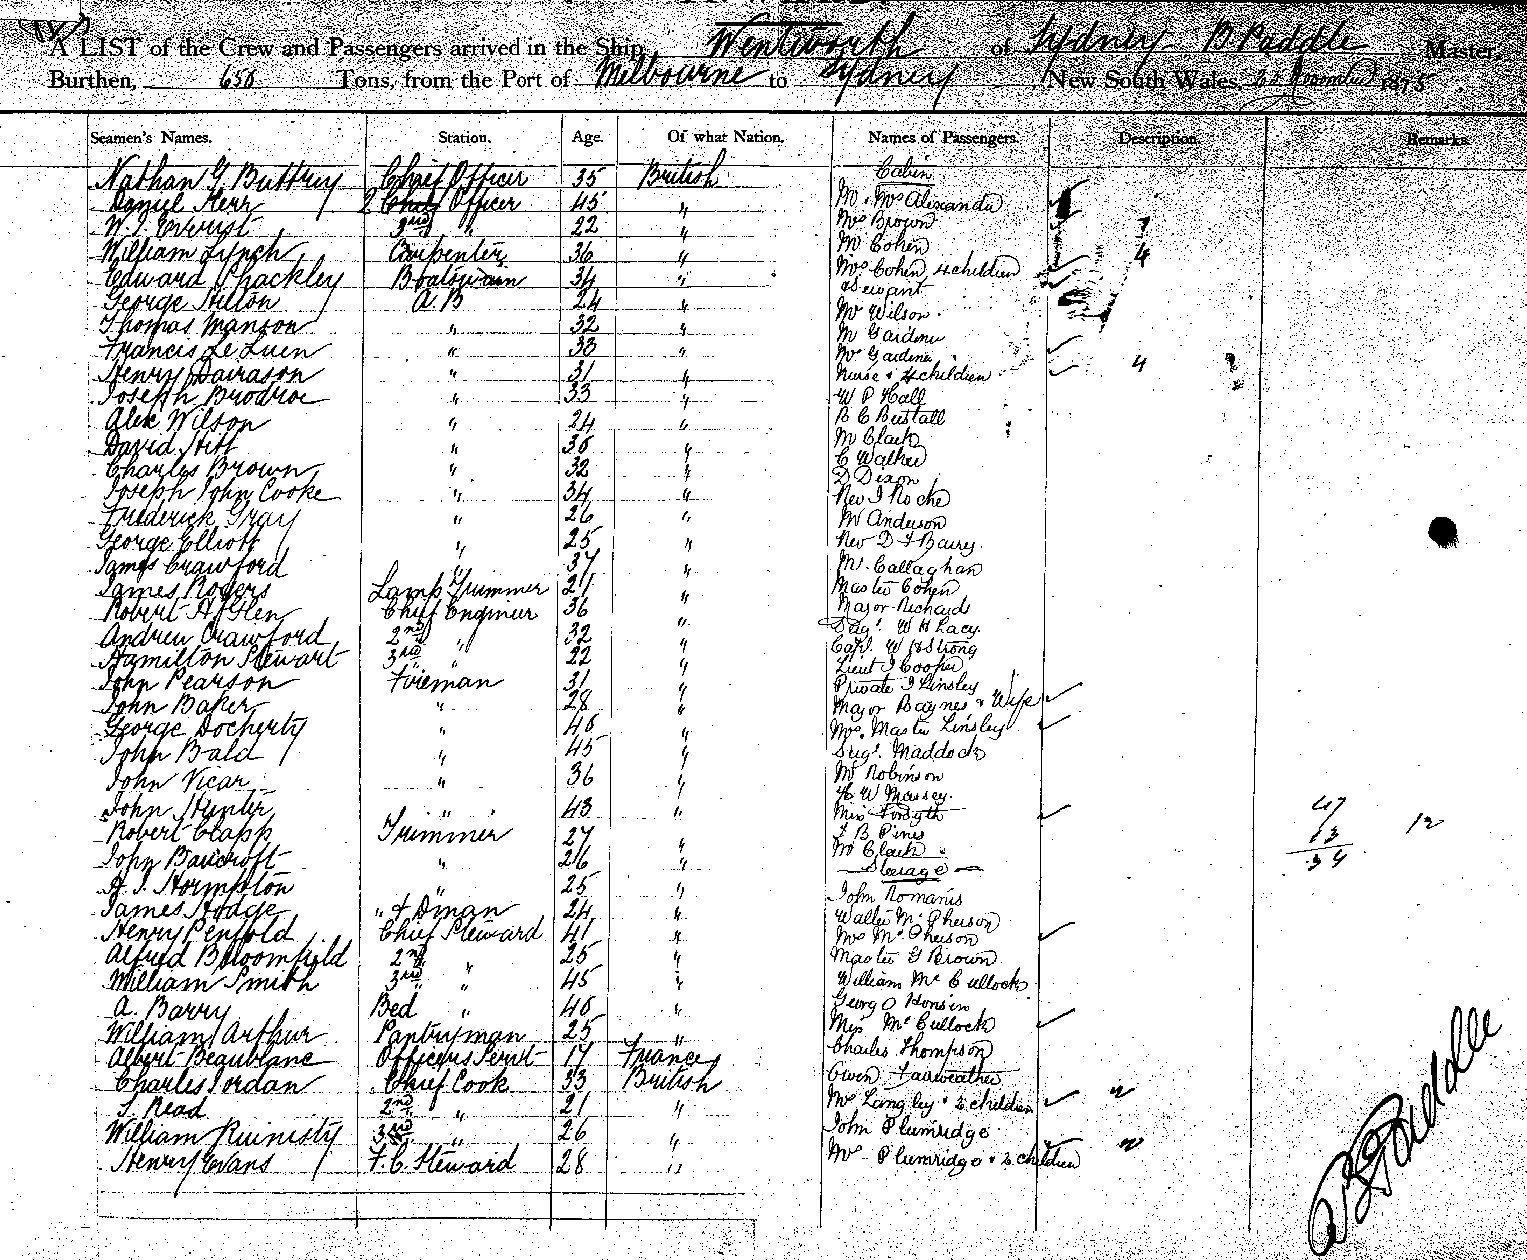 A LIST of the Crew and Passengers arrived in the Ship Wentworth of Sydney B Paddle Master,
Burthen, 650 Tons, from the Port of Melbourne to Sydney New South Wales 1875
Seamen's Names. Station. Age. Of what Nation. Names of Passengers. Description. Remarks.
Nathan G Buttrey Chief Officer 35 British Cabin
Daniel Kerr 2 Officer 45 " Mr & Mrs Alexander
22 " Mrs Brown 7
William Lynch Carpenter 36 " Mr Cohen 4
Edward Shackley Boatswain 34 " Mrs Cohen 4 children
George Hilton A.B 24 " & Servant
Thomas Manson " 32 " Mr Wilson
Francis Le Luen " 33 " Mr Gardiner
Henry Davidson " 31 " Mrs Gardiner
Joseph " 33 " Nurse & 4 children 4
Alex Wilson " 24 " W P Hall
David Hill " 30 " B C
Charles Brown " 32 " Mr Clark
Joseph John Cooke " 34 " C Walker
Frederick Gray " 26 " D Dixon
George Elliott " 25 " Rev J Roche
James Crawford " 37 " Mr Anderson
James Rogers Lamp Trimmer 21 " Rev D F
Robert A Glen Chief Engineer 36 " Mr Callaghan
Andrew Crawford 2nd " 32 " Master Cohen
Hamilton Stewart 3rd " 22 " Major Richards
John Pearson Fireman 31 " W H Lacy
John Baker " 28 " Capt W Strong
George Docherty " 40 " Lieut J Cooper
John Bald " 45 " Private J Linsley
John Vicar " 36 " Major Baynes & Wife
John Hunter " 43 " Mrs. Master Linsley
Robert Clapp Trimmer 27 " Maddocks
John Bancroft " 26 " Mr Robinson
" 25 " H W Massey
James Hodge " & Dman 24 " Miss Forsyth 47
Henry Penfold Chief Steward 41 " J B Pines 13 12
Alfred Bloomfield 2nd " 25 " Mr Clark 34
William Smith 3rd " 45 " Steerage
A. Barry Bed " 40 " John Romanis
William Arthur Pantryman 25 " Walter McPherson
Albert Beaublanc Officers Servt 17 France Mrs McPherson
Charles Jordan Chief Cook 33 British Master G Brown
J. Read 2nd " 21 " William McCullock
William 3rd " 26 " George
Henry Evans F.C. Steward 28 " Miss McCullock
Charles Thompson
Owen Fairweather
Mrs Langley & 2 children 2
John Plumridge
Mrs Plumridge & 2 children 2
B Paddle